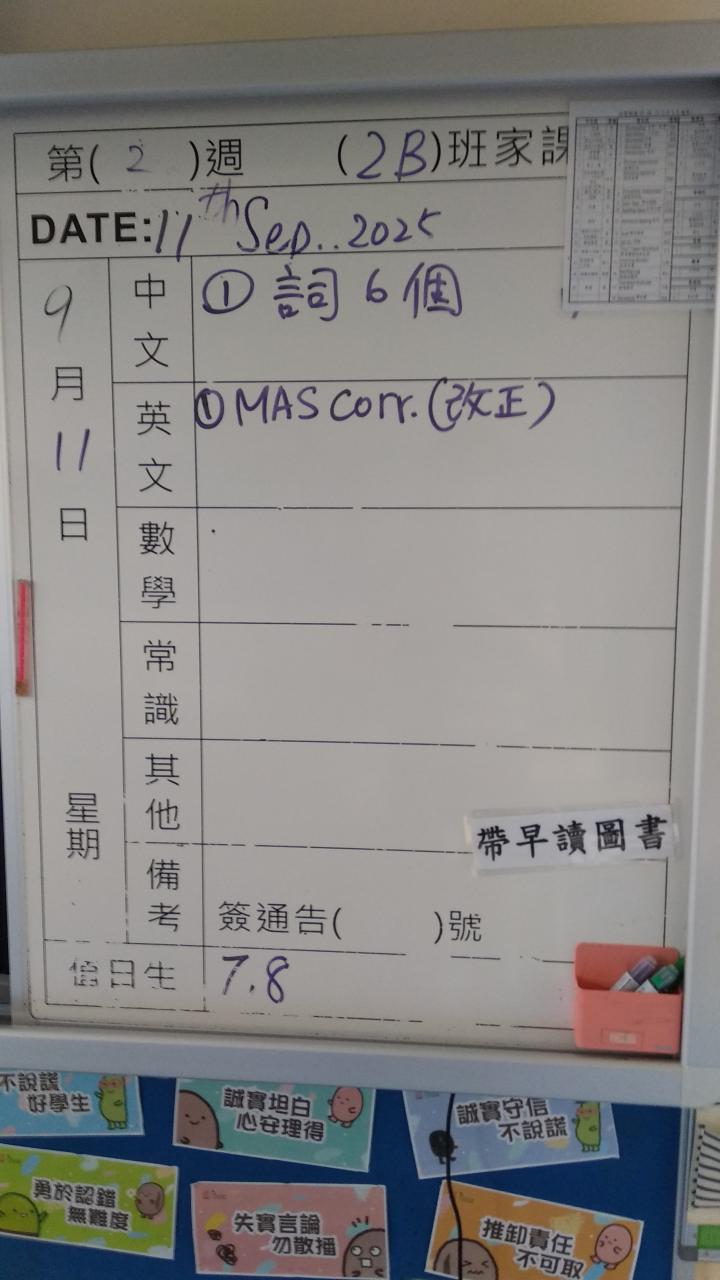 第( 2 )週 (2B)班家課
DATE: 11th Sep.. 2025
9月11日
星期
中文 ① 詞 6 個
英文 ① MAS Corr. (改正)
數學
常識
其他
帶早讀圖書
備考 簽通告( )號
值日生 7.8
不說謊
好學生
誠實坦白
心安理得
誠實守信
不說謊
勇於認錯
無難度
失實言論
勿散播
推卸責任
不可取